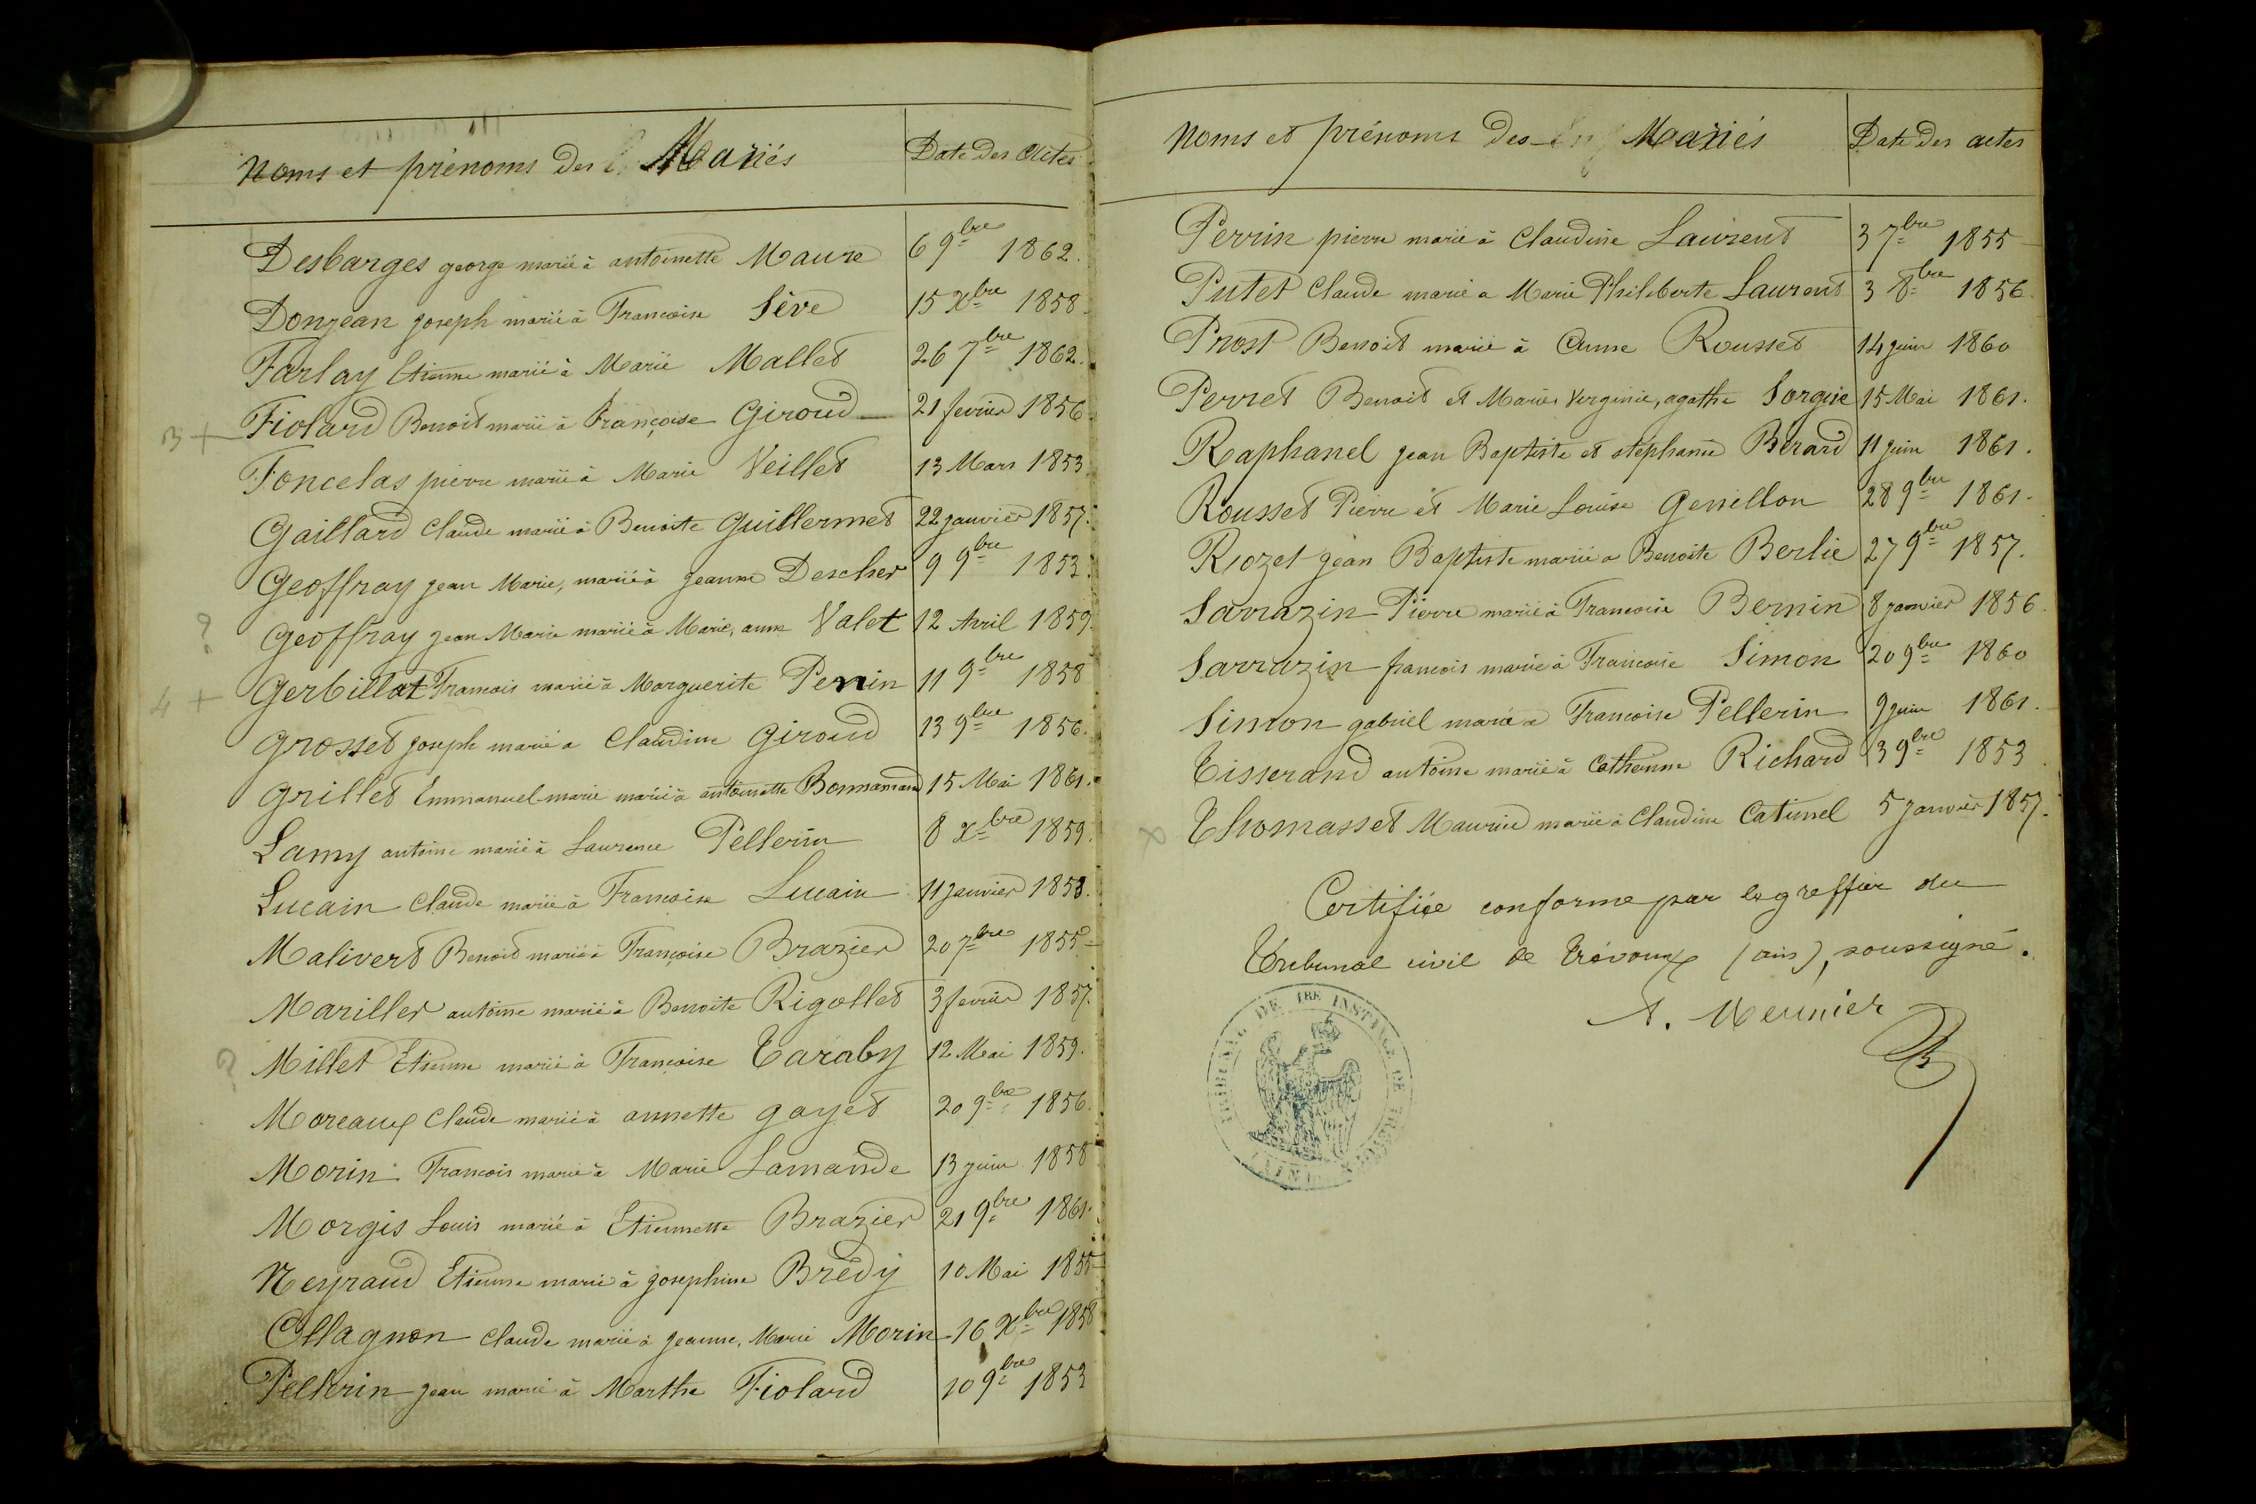 Noms et prénoms des Mariés Date des Actes
Desbarges george marié à antoinette Maure 6 9bre 1862.
Donjean joseph marié à Francoise Sève 15 Xbre 1858.
Farlay Etienne marié à Marie Mallet 26 7bre 1862.
3 + Fiolard Benoit marié à Françoise Giroud 21 fevrier 1856
Foncelas pierre marié à Marie Veillet 13 Mars 1853
Gaillard Claude marié à Benoite Guillermet 22 janvier 1857.
Geoffray jean Marie, marié à jeanne Descher 9 9bre 1853.
? Geoffray jean Marie marié à Marie, anne Valet 12 Avril 1859.
4 + Gerbillat Francois marié à Marguerite Penin 11 9bre 1858
Grosset joseph marié a Claudine Giroud 13 9bre 1856.
Grillet Emmanuel marie marié à antoinette Bonnamand 15 Mai 1861.
Lamy antoine marié à Laurence Pellerin 8 Xbre 1859.
Lucain Claude marié à Francoise Lucain 11 janvier 1858.
Malivert Benoit marié à Françoise Brazier 20 7bre 1855
Mariller antoine marié à Benoite Rigollet 3 fevrier 1857.
? Millet Etienne marié à Françoise Taraby 12 Mai 1859.
Moreaux Claude marié à annette gayet 20 9bre 1856.
Morin Francois marié à Marie Lamande 13 juin 1858
Morgis Louis marié à Etiennette Brazier 21 9bre 1861.
Neyraud Etienne marié à josephine Brédy 10 Mai 1855
Ollagnon Claude marié à jeanne, Marie Morin 16 Xbre 1858
Pellerin jean marié à Marthe Fiolard 10 9bre 1853
Noms et prénoms des Mariés Date des actes
Perrin pierre marié à Claudine Laurent 3 7bre 1855
Putet Claude marié a Marie Philiberte Laurent 3 8bre 1856
Prost Benoit marié à Anne Rousset 14 juin 1860
Perret Benoit et Marie Virginie, agathe Sorgue 15 Mai 1861.
Raphanel jean Baptiste et stephanie Berard 11 juin 1861.
Rousset Pierre et Marie Louise Genillon 28 9bre 1861.
Riozet jean Baptiste marié a Benoite Berlie 27 9bre 1857.
Sarrazin Pierre marié à Francoise Bernin 8 janvier 1856
Sarrazin francois marié à Francoise Simon 20 9bre 1860
Simon gabriel marié a Francoise Pellerin 9 juin 1861.
Tisserand antoine marié à Catherine Richard 3 9bre 1853
x Thomasset Maurice marié à Claudine Catimel 5 janvier 1857.
Certifiée conforme par le greffier du
Tribunal civil de Trévoux (ain), soussigné.
A. Meunier
TRIBUNAL DE 1RE INSTANCE DE TREVOUX
(AIN)